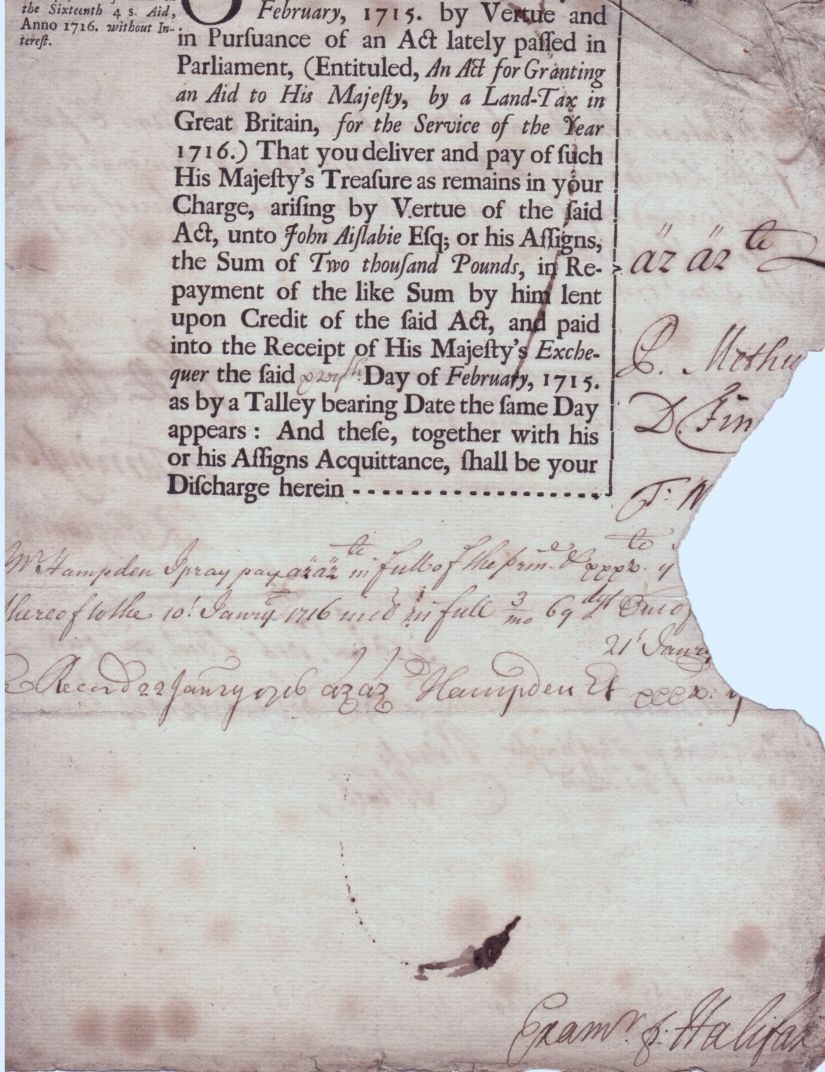 the Sixteenth 4 s. Aid,
Anno 1716. without In-
tereſt.
February, 1715. by Vertue and
in Purſuance of an Act lately paſſed in
Parliament, (Entituled, An Act for Granting
an Aid to His Majeſty, by a Land-Tax in
Great Britain, for the Service of the Year
1716.) That you deliver and pay of ſuch
His Majeſty's Treaſure as remains in your
Charge, ariſing by Vertue of the ſaid
Act, unto John Aiſlabie Eſq; or his Aſſigns,
the Sum of Two thouſand Pounds, in Re-
payment of the like Sum by him lent
upon Credit of the ſaid Act, and paid
into the Receipt of His Majeſty's Exche-
quer the ſaid Day of February, 1715.
as by a Talley bearing Date the ſame Day
appears: And theſe, together with his
or his Aſſigns Acquittance, ſhall be your
Diſcharge herein
P. Methu
D Fin
Mr Hampden I pray pay in full of the
thereof to the 10t Janry 1716 in full 3/mo 69
21t Janry
Record 22 Janry 1716 Hampden
Examr. p. Halifax